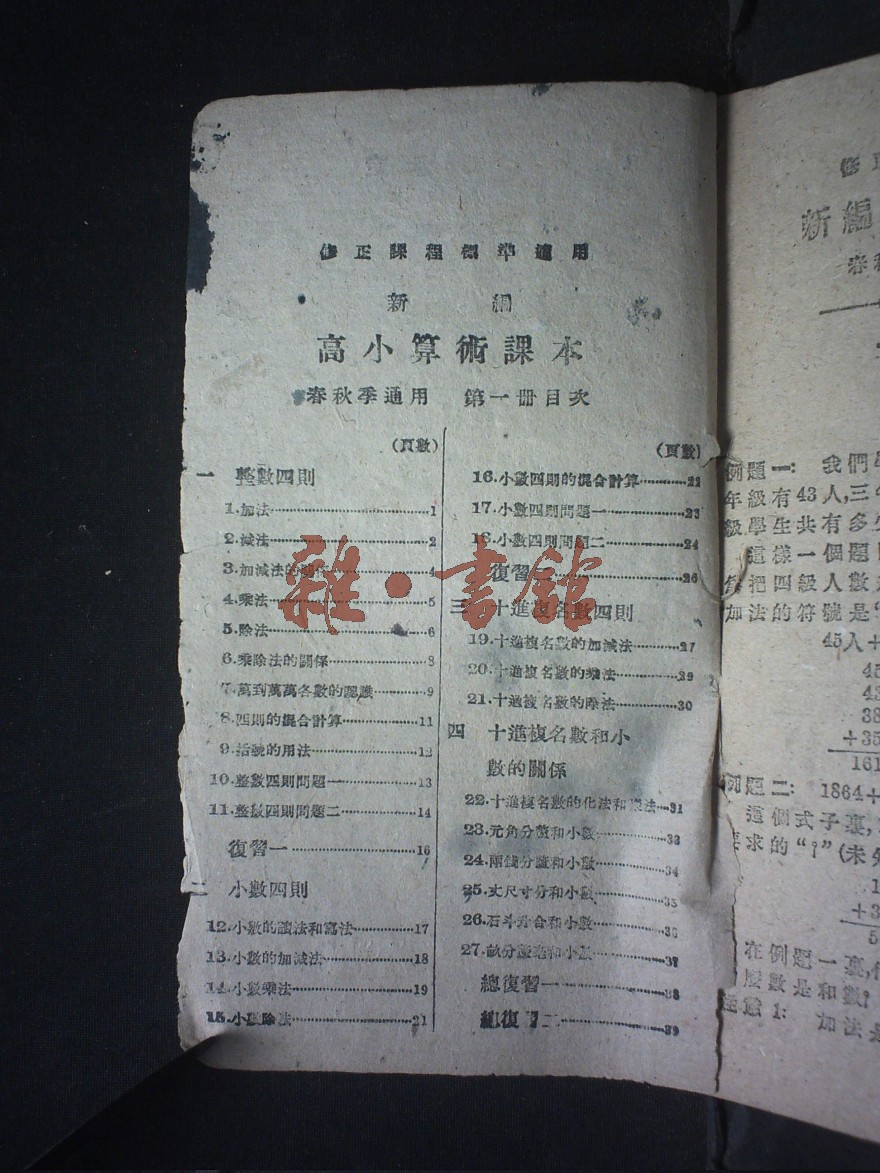 修正課程標準適用
新編
高小算術課本
春秋季通用 第一冊目次
(頁數)
一 整數四則
1.加法 1
2.減法 2
3.加減法的關係 4
4.乘法 5
5.除法 6
6.乘除法的關係 8
7.萬到萬萬各數的認識 9
8.四則的混合計算 11
9.括號的用法 12
10.整數四則問題一 13
11.整數四則問題二 14
復習一 16
二 小數四則
12.小數的讀法和寫法 17
13.小數的加減法 18
14.小數乘法 19
15.小數除法 21
(頁數)
16.小數四則的混合計算 22
17.小數四則問題一 23
18.小數四則問題二 24
復習二 26
三 十進複名數四則
19.十進複名數的加減法 27
20.十進複名數的乘法 29
21.十進複名數的除法 30
四 十進複名數和小
數的關係
22.十進複名數的化法和聚法 31
23.元角分釐和小數 33
24.兩錢分釐和小數 34
25.丈尺寸分和小數 35
26.石斗升合和小數 36
27.畝分釐毫和小數 37
總復習一 38
總復習二 39
雜·書館
修正
新編
春秋
例題一: 我們學
年級有43人,三年
級學生共有多少
這樣一個題目
把四級人數
加法的符號是“
45人+
45
43
38
+35
161
例題二: 1864+
這個式子裏,
要求的“?”(未知
1
+3
5
在例題一裏,什
麼數是和數?
注意1: 加法是